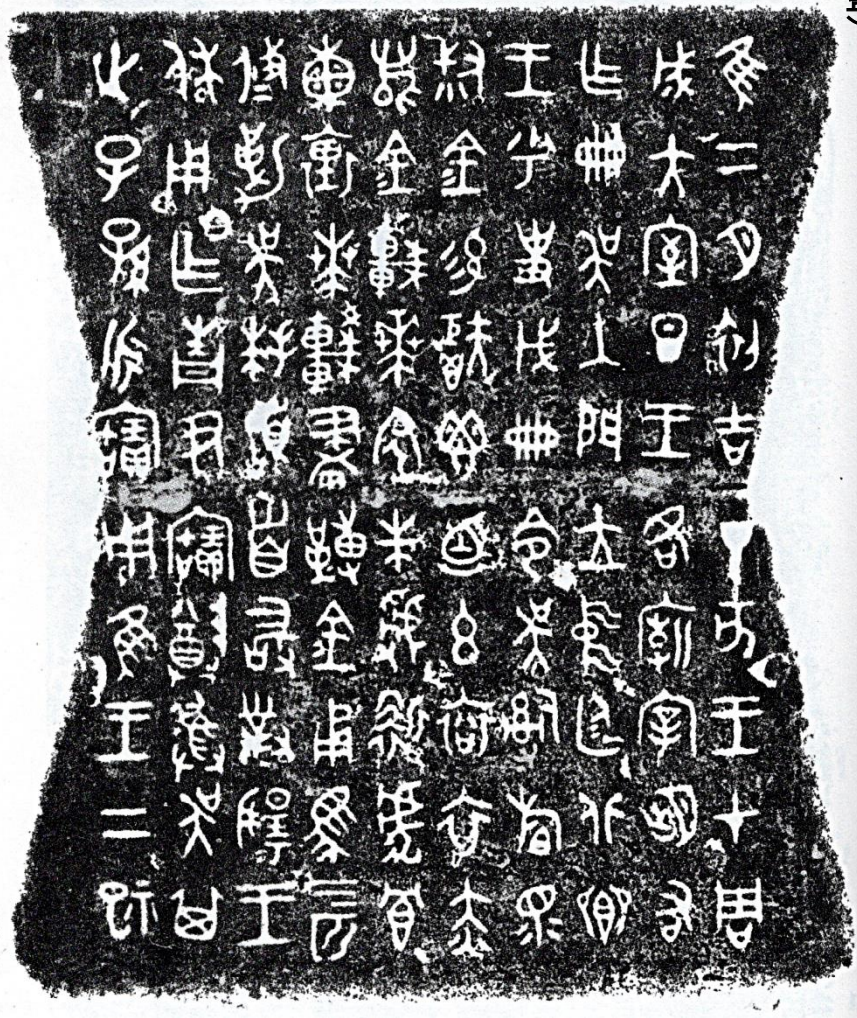 隹二月初吉丁亥王才周
成大室旦王各廟宰朏右
乍冊吳入門立中廷北鄉
王乎史戊冊令吳𤔲㫃眔
叔金易秬鬯一卣玄袞衣赤
舄金車𠦪㒼朱虢靳虎冟
熏裏𠦪較畫轉金甬馬四匹
攸勒吳拜稽首敢對揚王
休用乍青尹寶尊彝吳其
世子孫永寶用隹王二祀